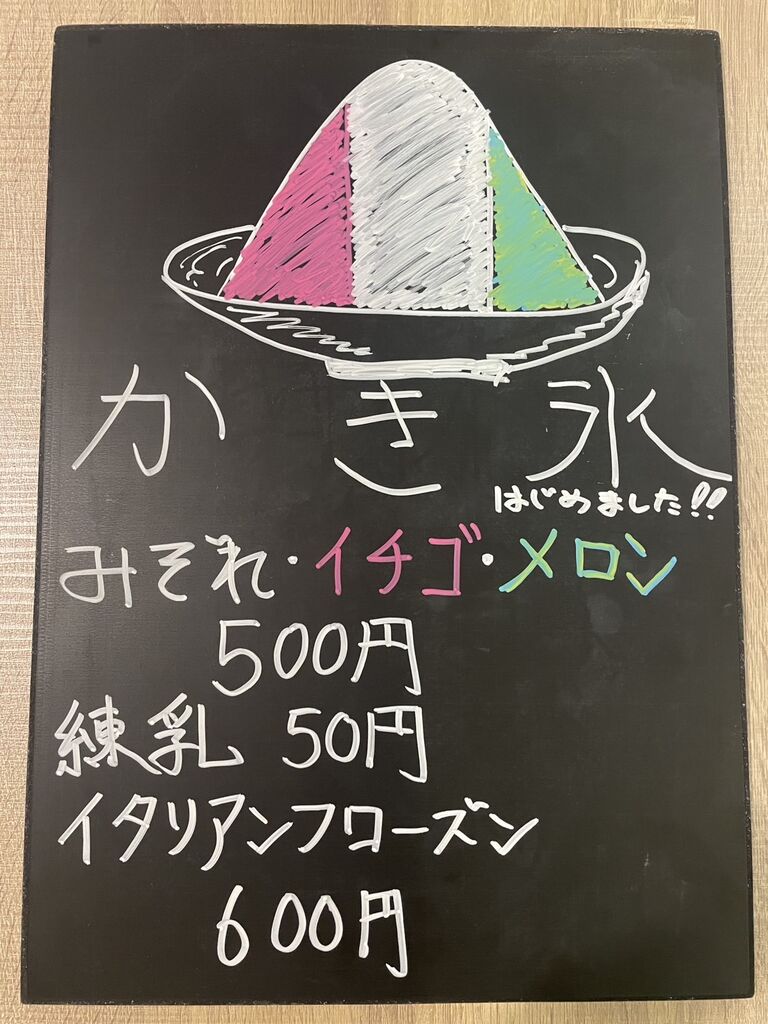 かき氷
はじめました!!
みぞれ・イチゴ・メロン
500円
練乳 50円
イタリアンフローズン
600円